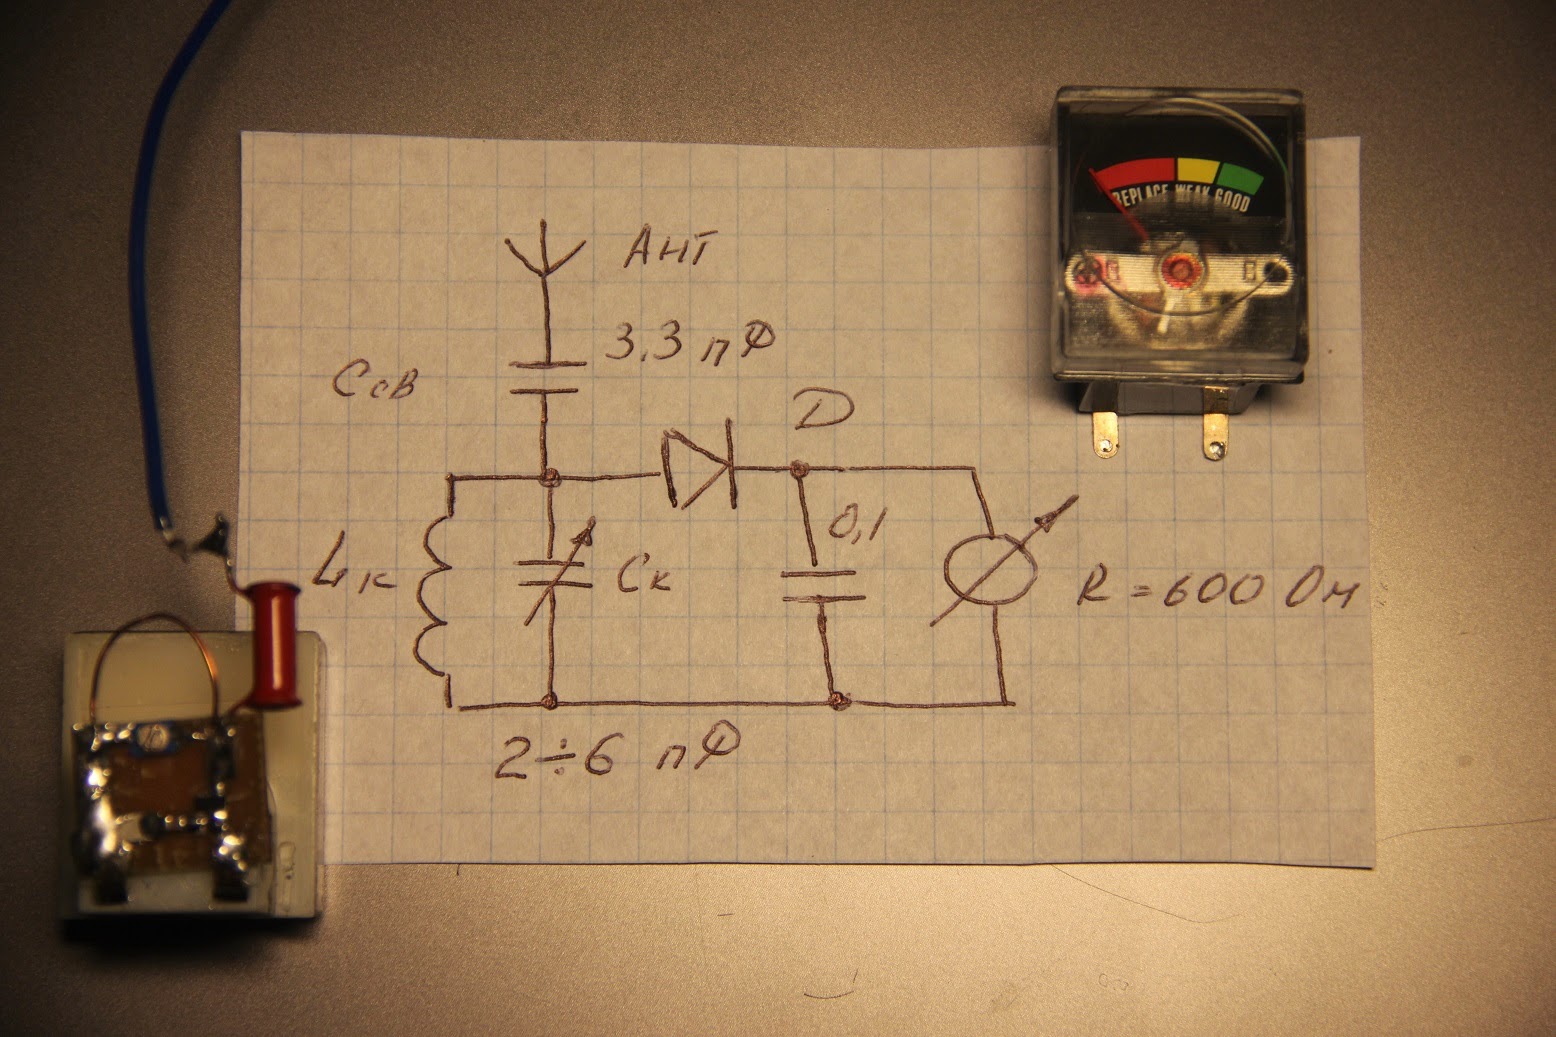 Ант
3,3 пФ
Ссв
D
0,1
Lк
Ск
R = 600 Ом
2÷6 пФ
REPLACE WEAK GOOD